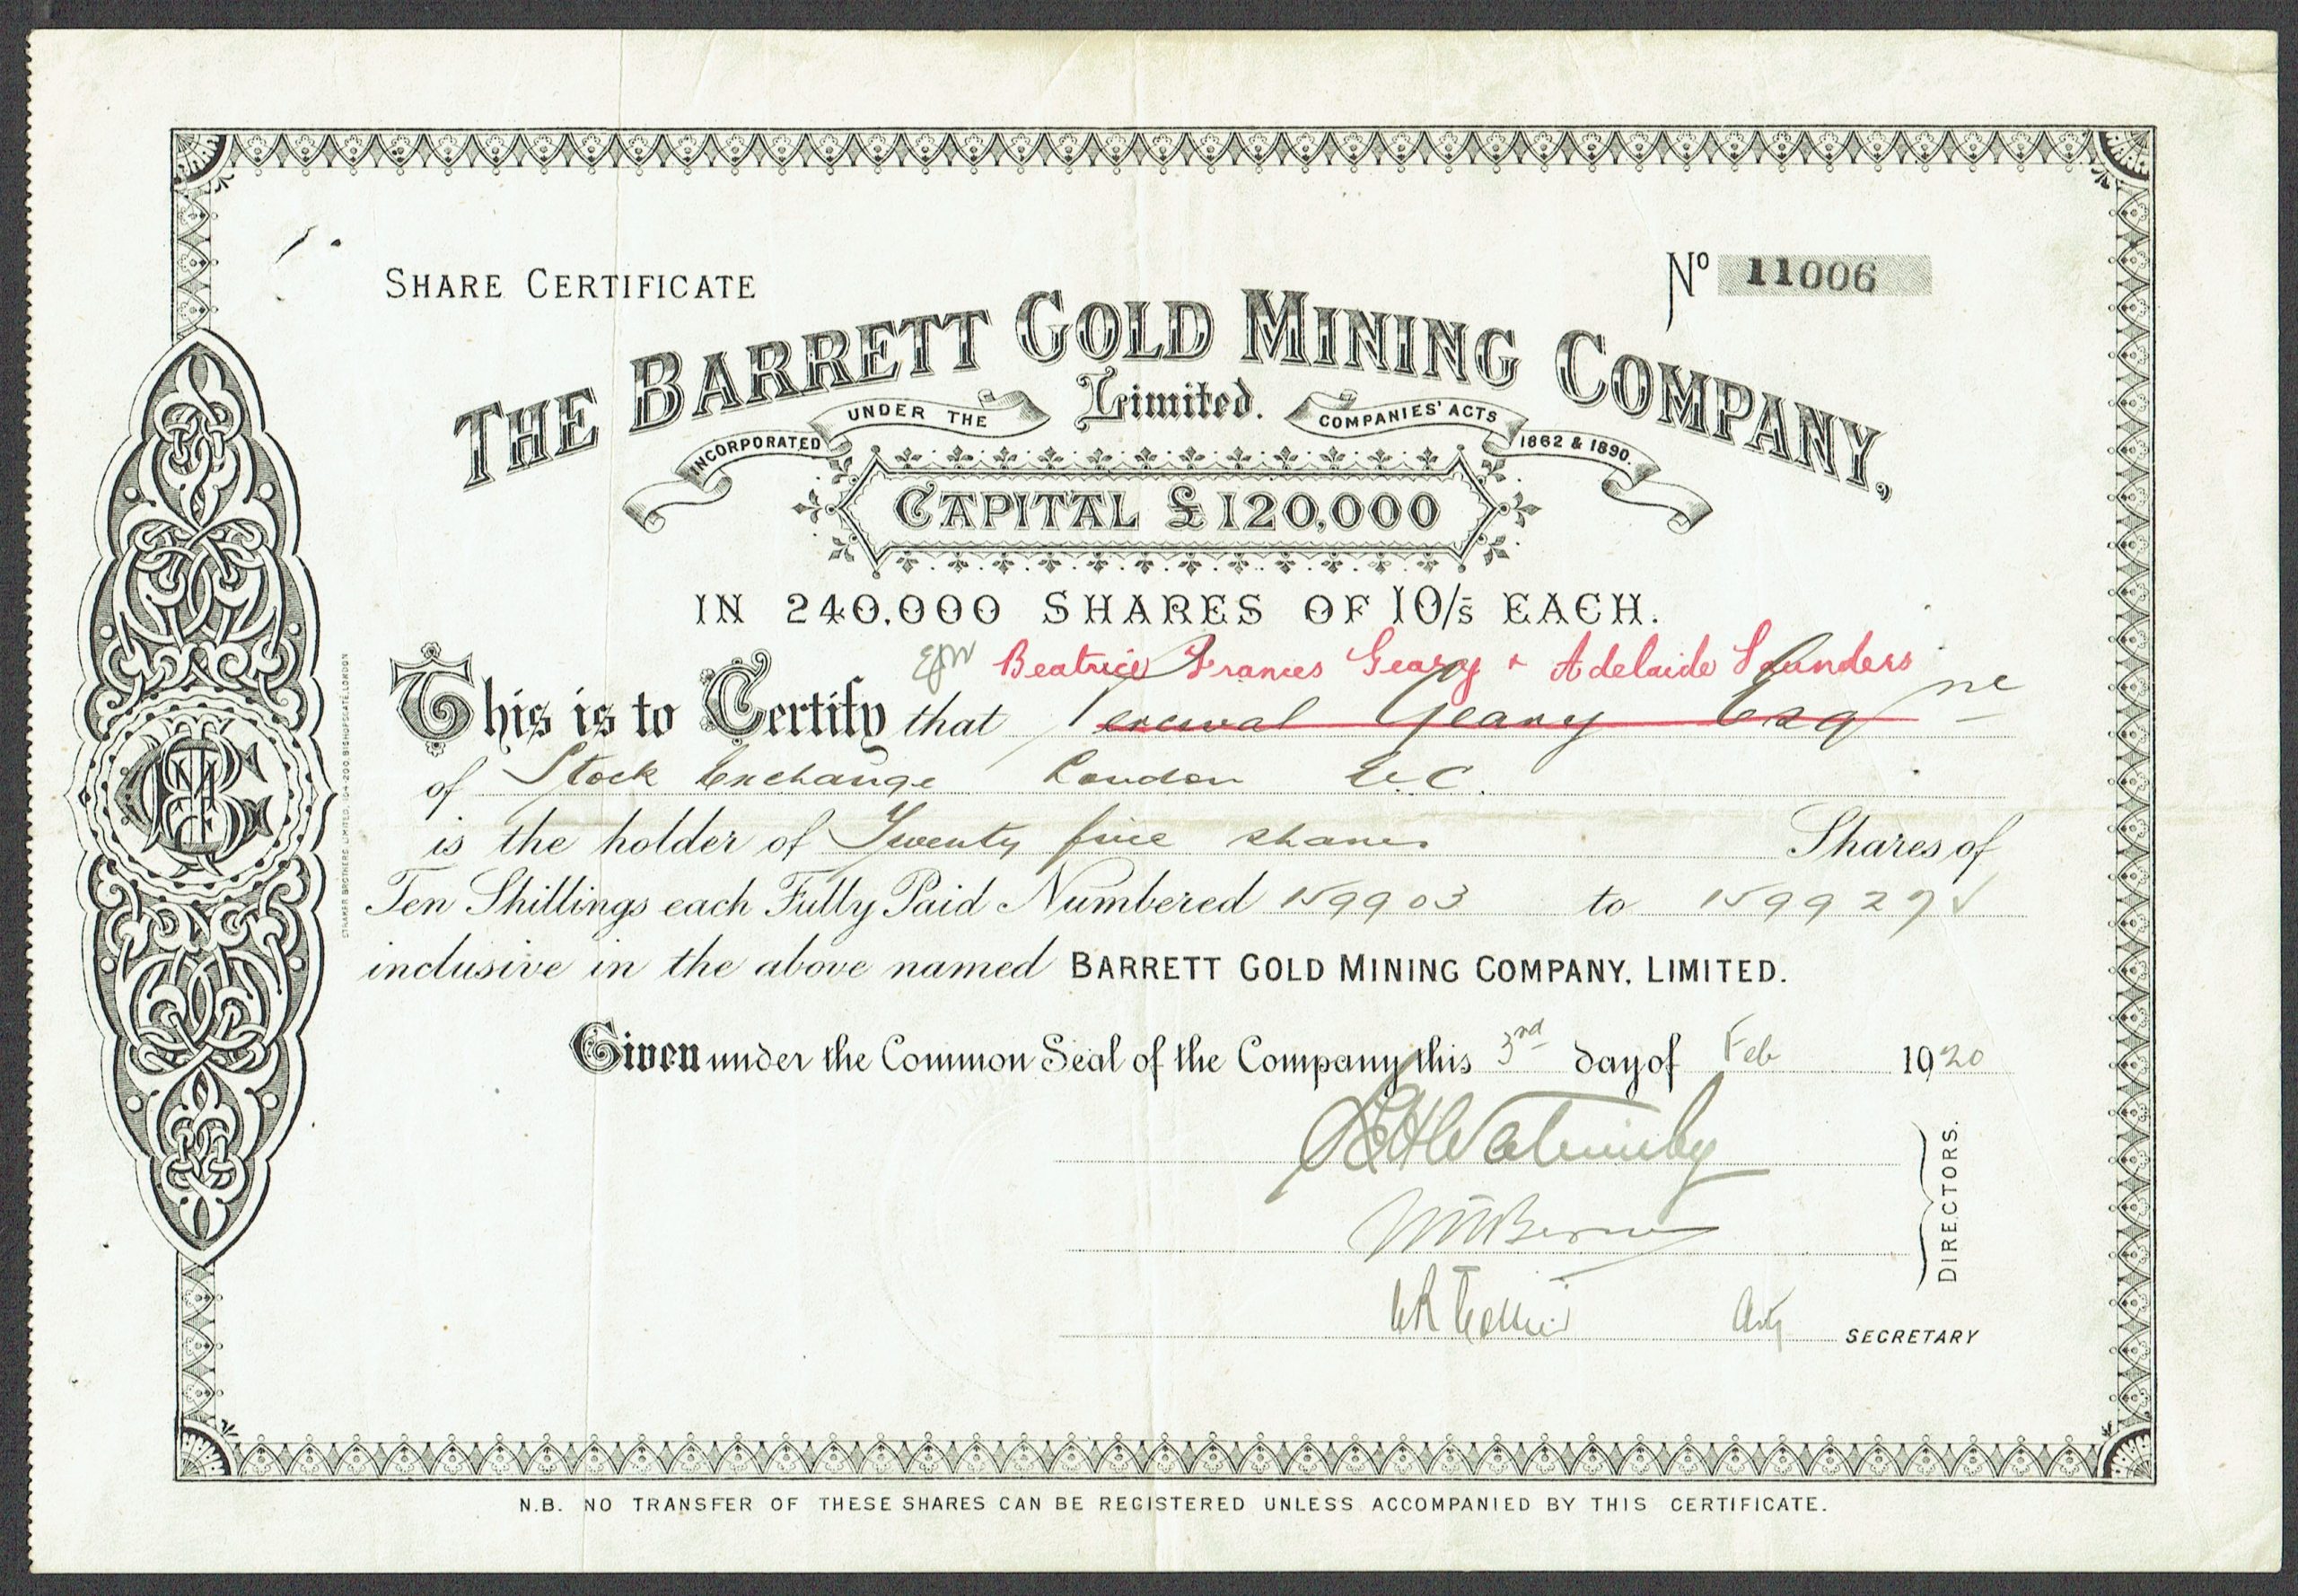 SHARE CERTIFICATE
Nº 11006
THE BARRETT GOLD MINING COMPANY,
Limited.
INCORPORATED UNDER THE COMPANIES' ACTS 1862 & 1890.
CAPITAL £120,000
IN 240,000 SHARES OF 10/s EACH.
Beatrice Frances Geary + Adelaide Saunders
This is to Certify that Percival Geary Esqre
of Stock Exchange London E.C.
is the holder of Twenty five shares Shares of
Ten Shillings each Fully Paid Numbered 159903 to 159927
inclusive in the above named BARRETT GOLD MINING COMPANY, LIMITED.
Given under the Common Seal of the Company this 3rd day of Feb 1920
DIRECTORS.
SECRETARY
N.B. NO TRANSFER OF THESE SHARES CAN BE REGISTERED UNLESS ACCOMPANIED BY THIS CERTIFICATE.
STRAKER BROTHERS LIMITED, 194-200, BISHOPSGATE, LONDON